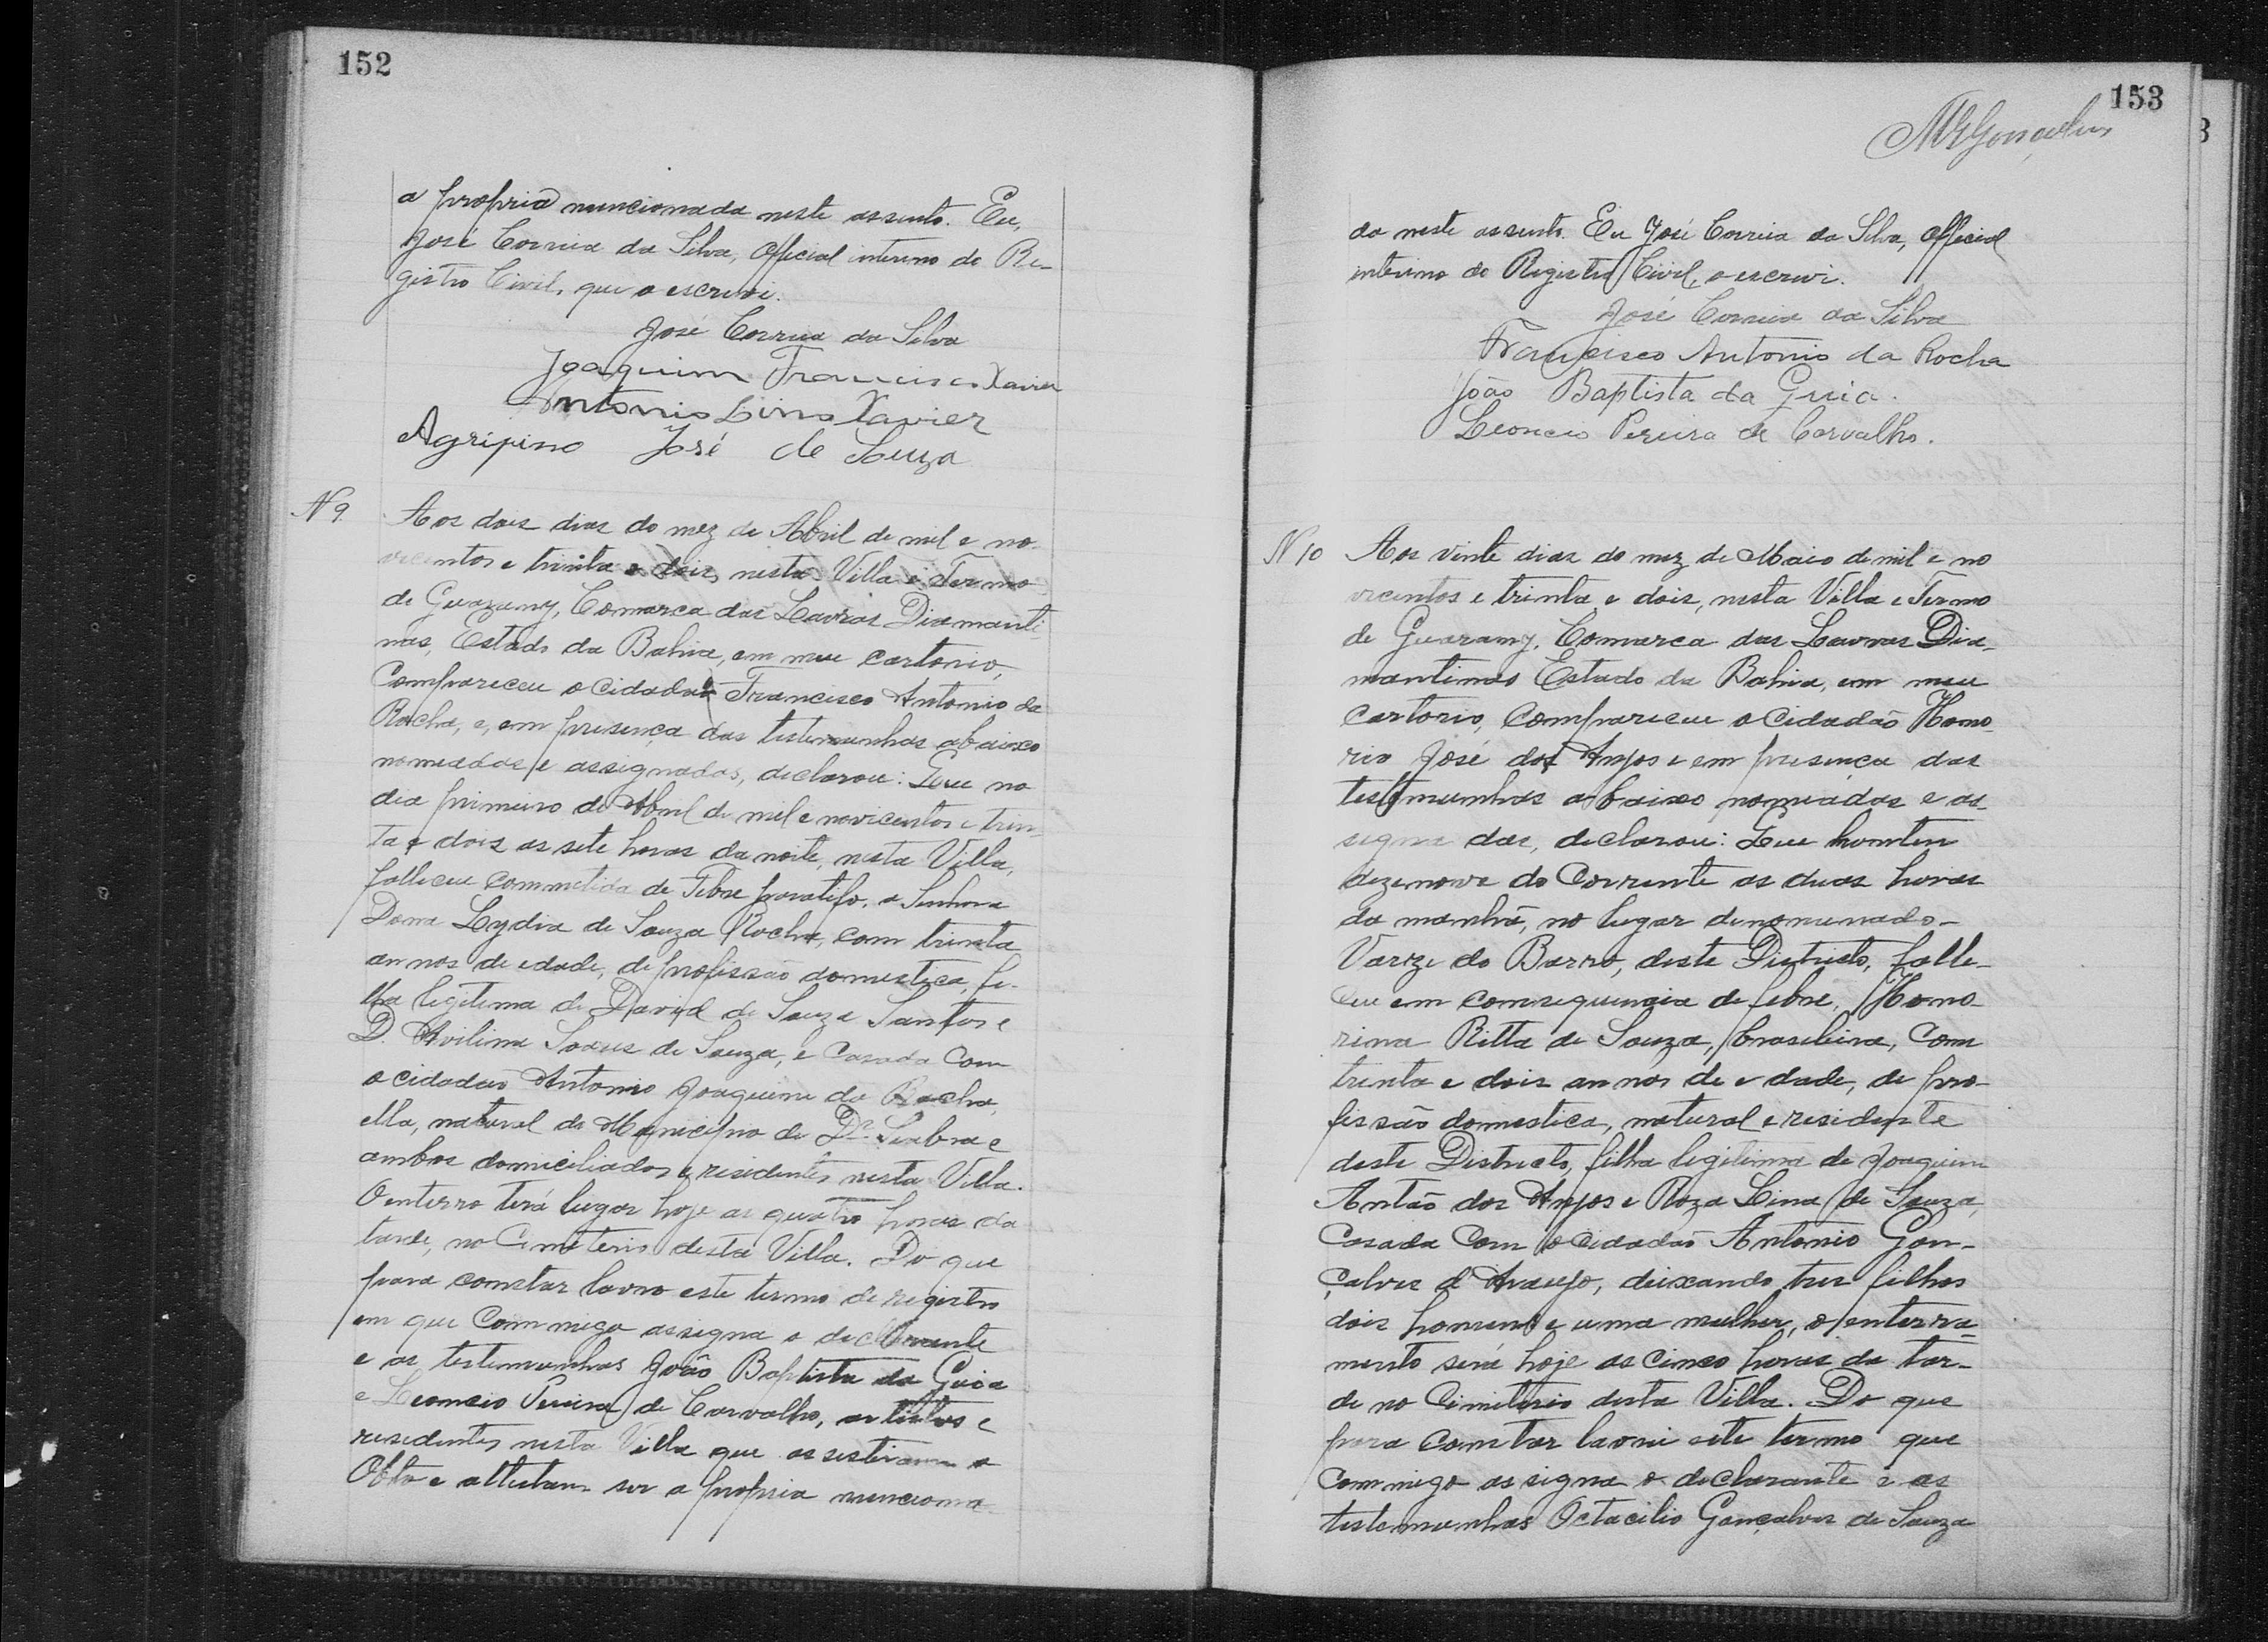 152
a propria mencionada neste assento. Eu,
José Correia da Silva, Official interino do Re-
gistro Civil, que o escrevi.
José Correia da Silva
Joaquim Francisco Xavier
Antonio Lino Xavier
Agripino José de Souza
N 9. Aos dois dias do mez de Abril de mil e no-
vecentos e trinta e dois, nesta Villa e Termo
de Guarany, Comarca das Lavras Diamanti-
nas, Estado da Bahia, em meu cartorio,
Compareceu o cidadão Francisco Antonio da
Rocha, e, em presença das testemunhas abaixo
nomeadas e assignadas, declarou: Que no
dia primeiro de Abril de mil e novicentos e trin-
ta e dois as sete horas da noite, nesta Villa,
falleceu commetida de Febre paratifo, a Senhora
Dona Lydia de Souza Rocha, com trinta
annos de edade, de profissão domestica, fi-
lha legitima de David de Souza Santos e
D. Avilina Soares de Souza, e Casada Com
o cidadão Antonio Joaquim da Rocha,
ella, natural do Municipio de Dr. Seabra e
ambos domiciliados e residentes nesta Villa.
O enterro terá lugar hoje as quatro horas da
tarde, no Cimiterio desta Villa. Do que
para constar lavro este termo de registro
em que Commigo assigna o declarante
e as testemunhas João Baptista da Guia
e Leoncio Pereira de Carvalho, artistas e
residentes nesta Villa que assistiram o
Obto e attestam ser a propria menciona-
153
MRGonçalves
da neste assento. Eu José Correia da Silva, Official
interino do Registro Civil, o escrivi.
José Correia da Silva
Francisco Antonio da Rocha
João Baptista da Guia.
Leoncio Pereira de Carvalho.
N 10 Aos vinte dias do mez de Maio de mil e no
vecentos e trinta e dois, nesta Villa e Termo
de Guarany, Comarca das Lavras Dia-
mantinas Estado da Bahia, em meu
cartorio, Compareceu o Cidadão Hono-
rio José dos Anjos e em presença das
testemunhas abaixo nomeadas e as-
signa das, declarou: Que hontem
dezenove do Corrente as duas horas
da manhã, no lugar denominado-
Varze do Barro, deste Districto, falle-
ceu em consequencia de febre, Hono-
rina Ritta de Souza, brasileira, Com
trinta e dois annos de edade, de pro-
fissão domestica, natural e residente
deste Districto, filha legitima de Joaquim
Antão dos Anjos e Roza Lina de Souza,
Casada Com o Cidadão Antonio Gon-
çalves d'Araujo, deixando tres filhos
dois homens e uma mulher, o enterra-
mento será hoje as Cinco horas da tar-
de no Cimiterio desta Villa. Do que
para Constar lavrei este termo que
Commigo assigna o declarante e as
testemunhas Octacilio Gonçalves de Souza